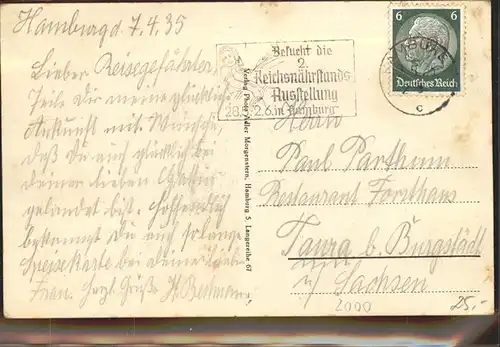 Hamburg d. 7.4.35
Lieber Reisegefährter,
Teile Dir meine glückliche
Ankunft mit. Wünsche,
daß Du auch glücklich bei
Deiner lieben
gelandet bist. Hoffentlich
bekommst Du auch
Speisekarte bei Deiner
Frau. Herzl. Grüße H.
Besucht die
2.
Reichsnährstands
Ausstellung
28.5.-2.6. in Hamburg
HAMBURG
c
6 6
Deutsches Reich
Verlag Photo-Adler Morgenstern, Hamburg 5, Langereihe 67
Herrn
Paul Parthum
Restaurant Forsthaus
Taura b. Burgstädt
i/ Sachsen
2000
25,-